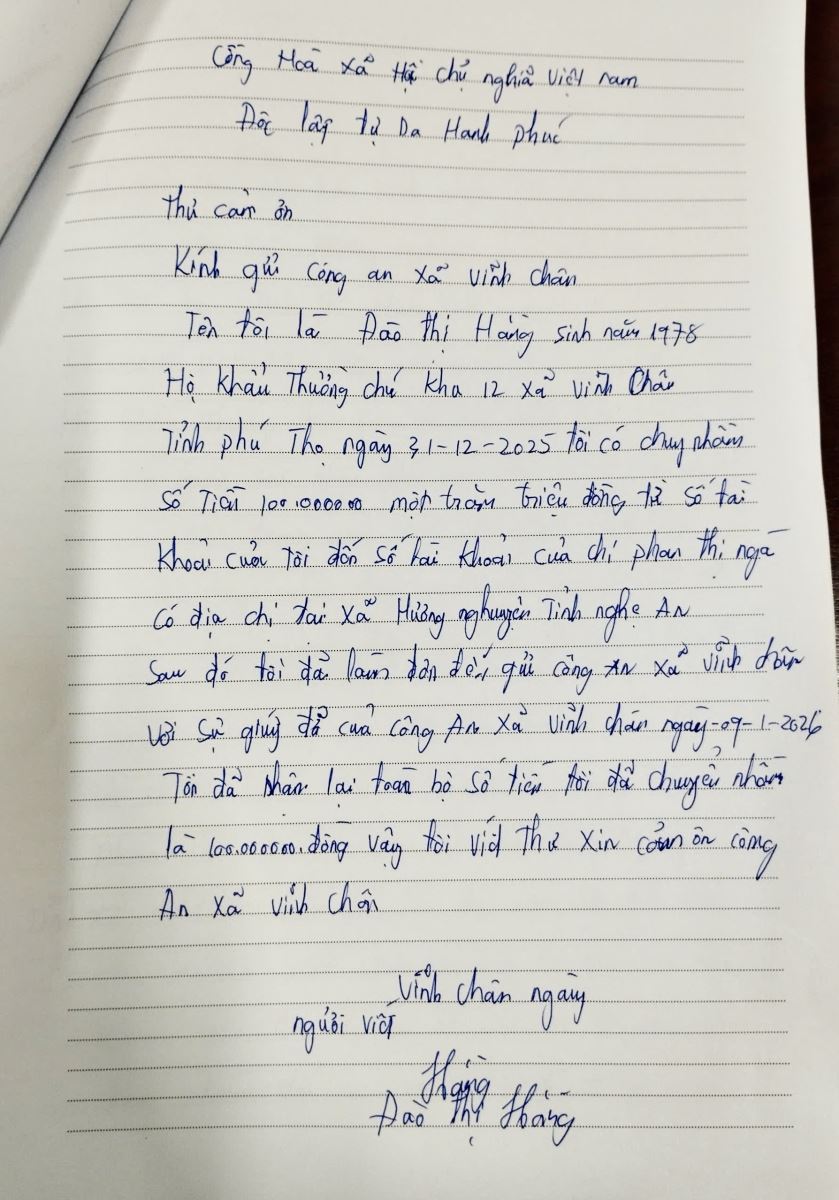 Cồng Hoà xẫ Hội chủ nghĩa Việt nam
Độc lập tự Da Hanh phúc
Thư cảm ơn
Kính gửi công an xẫ vĩnh chân
Tên tôi là Đào thị Hằng sinh năm 1978
Hộ khẩu Thường chú kha 12 xã Vĩnh Chân
Tỉnh phú Thọ ngày 31-12-2025 tôi có chuy nhầm
số Tiền 100.000000 một trăm triệu đồng từ số tài
khoải của Tôi đến số tài khoải của chị phan thị ngà
có địa chị tại xã Hương nghuyên Tỉnh nghệ An
Sau đó tôi đã làm đơn đến gửi công An xã vĩnh chân
với sự giúy đỡ cuả công An xã vĩnh chân ngày-09-1-2026
Tôn đã nhân lại toàn bộ số tiền tôi đã chuyển nhầm
là 100.000000.đồng vậy tôi viết thư xin cảm ơn công
An xã vĩnh chân
vĩnh chân ngày
người viết
Hằng
Đào thị Hằng